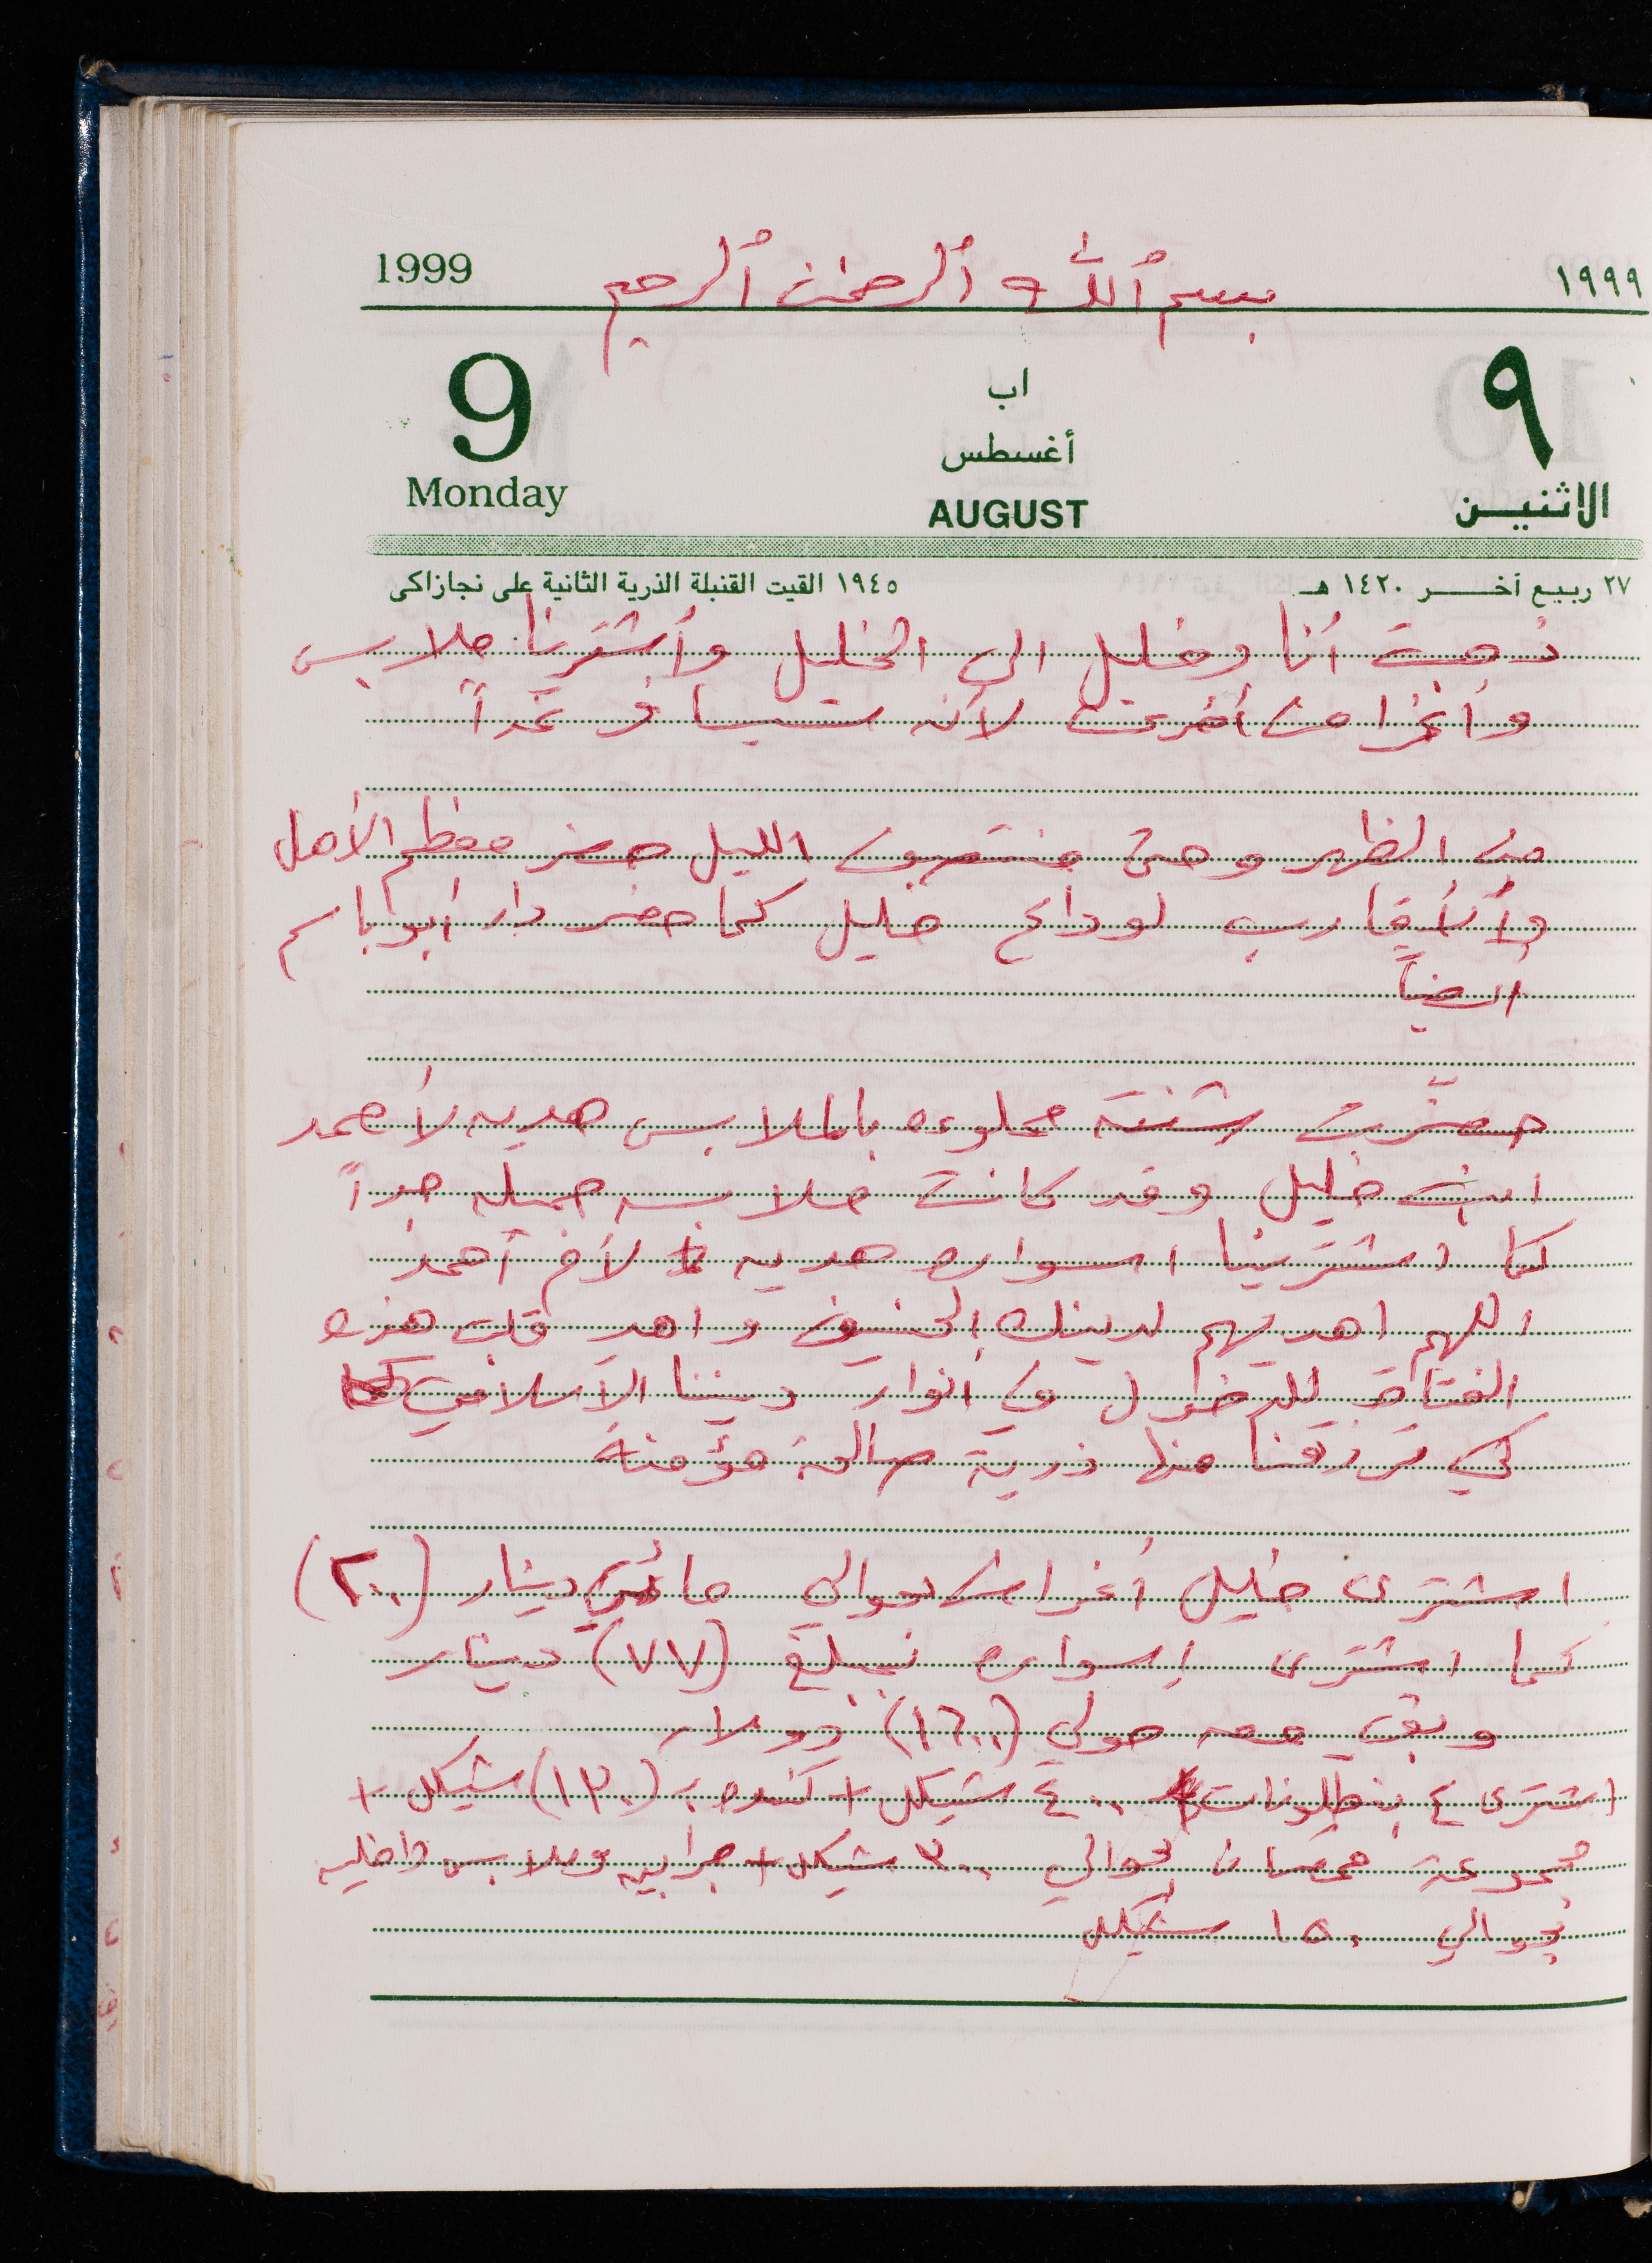 1999 بسم الله الرحمن الرحيم ١٩٩٩
9 اب ٩
أغسطس
Monday AUGUST الاثنين
٢٧ ربيع أخر ١٤٢٠ هـ ١٩٤٥ القيت القنبلة الذرية الثانية على نجازاكى
ذهبت أنا وخليل الى الخليل وأشترينا ملابس
وأغراض أخرى لأنه سيسافر غداً
من الظهر وحتى منتصف الليل حضر معظم الأهل
والأقارب لوداع خليل كما حضر دار أبو باسم
ايضاً
حضّرت شنته مملوءه بالملابس هديه لأحمد
ابن خليل وقد كانت ملابسه جميله جداً
كما اشترينا اسواره هديه لأم أحمد
اللهم اهديهم لدينك الحنيف واهد قلب هذه
الفتاة للدخول في أنوار ديننا الاسلامي
كي ترزقنا منها ذرية صالحة مؤمنة
اشترى خليل أغراض بحوالي مائتي دينار (٢٠٠)
كما اشترى اسواره بمبلغ (٧٧) دينار
وبقي معه حولي (١٦٠٠) دولار
اشترى ٤ بنطلونات ٤٠٠ شيكل + كندره بـ (١٣٠) شيكل +
مجموعة قمصان بحوالي ٣٠٠ شيكل + جرابيه وملابس داخليه
بحوالي ١٥٠ شيكل